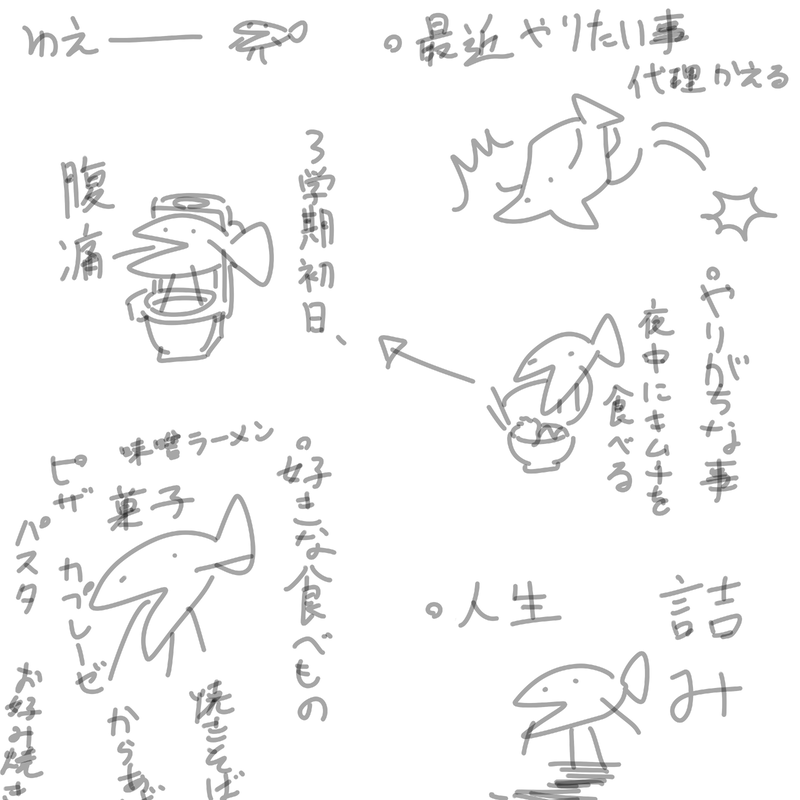 ゆえ
最近やりたい事
代理かえる
3学期初日、
腹痛
やりがちな事
夜中にキムチを
食べる
好きな食べもの
味噌ラーメン
菓子
ピザ
パスタ
カプレーゼ
焼きそば
からあげ
お好み焼き
人生
詰み